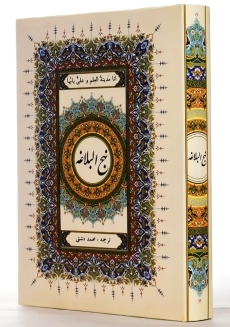 انا مدینة العلم و علیٌ بابها
نهج البلاغه
ترجمه : محمد دشتی
نهج البلاغه